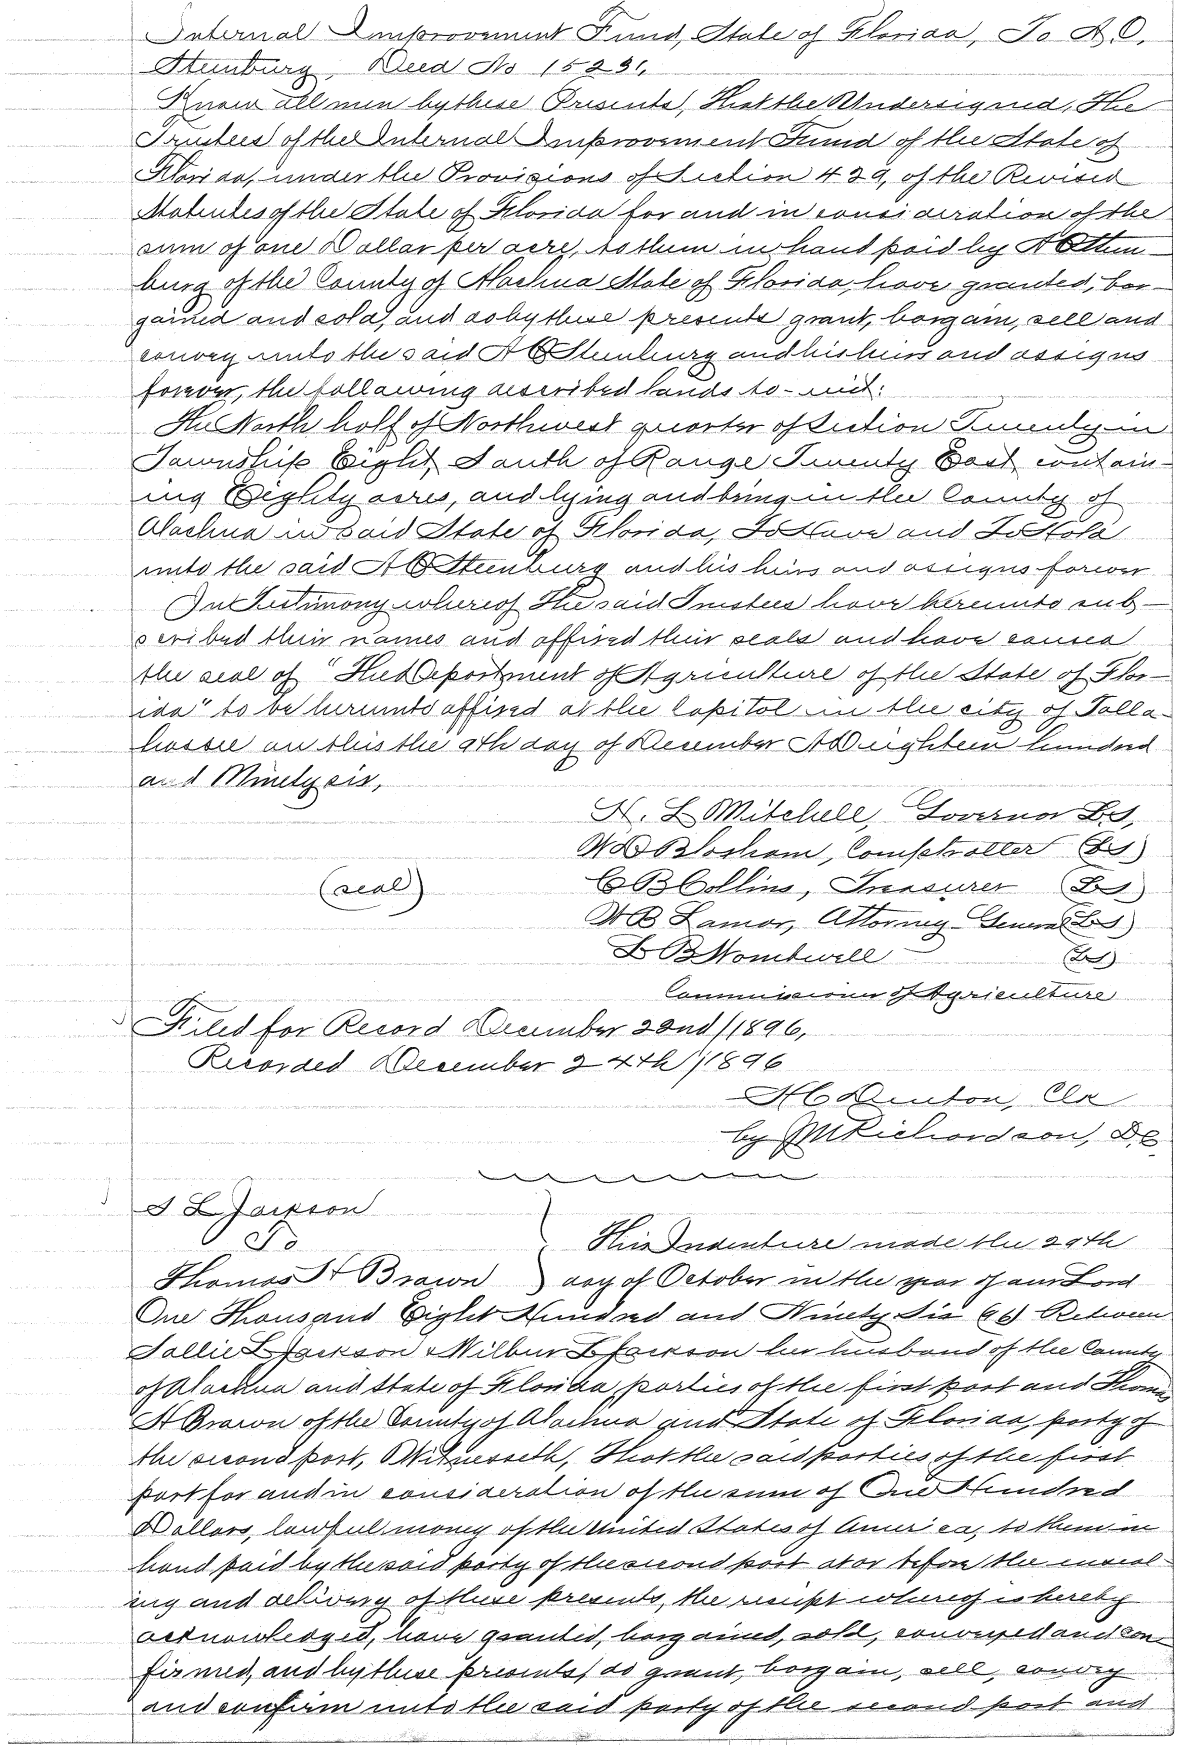 Internal Improvement Fund, State of Florida, To A. O.
Steenburg, Deed No 15231,
Know all men by these Presents, That the Undersigned, The
Trustees of the Internal Improvement Fund of the State of
Florida, under the Provisions of Section 429, of the Revised
Statutes of the State of Florida for and in consideration of the
sum of one Dollar per acre, to them in hand paid by A O Steen-
burg of the County of Alachua State of Florida, have granted, bar-
gained and sold, and do by these presents grant, bargain, sell and
convey unto the said A O Steenburg and his heirs and assigns
forever, the following described lands to-wit:
The North half of Northwest quarter of Section Twenty in
Township Eight, South of Range Twenty East contain-
ing Eighty acres, and lying and being in the County of
Alachua in said State of Florida, To Have and To Hold
unto the said A O Steenburg and his heirs and assigns forever
In Testimony whereof The said Trustees have hereunto sub-
scribed their names and affixed their seals and have caused
the seal of "The Department of Agriculture of the State of Flor-
ida" to be hereunto affixed at the Capitol in the city of Talla-
hassee on this the 9th day of December A D eighteen hundred
and Ninety six,
H. L Mitchell, Governor L S,
W D Bloxham, Comptroller (L S)
(seal) C B Collins, Treasurer (L S)
W B Lamar, Attorney-General (L S)
L B Wombwell (L S)
Commissioner of Agriculture
Filed for Record December 22nd/1896,
Recorded December 24th/1896
H C Denton, Clk
by J M Richardson, D C
S L Jackson
To This Indenture made the 29th
Thomas H Brown ) day of October in the year of our Lord
One Thousand Eight Hundred and Ninety Six (96) Between
Sallie L Jackson & Wilbur L Jackson her husband of the County
of Alachua and State of Florida, parties of the first part and Thomas
H Brown of the County of Alachua and State of Florida, party of
the second part, Witnesseth, That the said parties of the first
part for and in consideration of the sum of One Hundred
Dollars, lawful money of the United States of America, to them in
hand paid by the said party of the second part at or before the enseal-
ing and delivery of these presents, the receipt whereof is hereby
acknowledged, have granted, bargained, sold, conveyed and con-
firmed, and by these presents do grant, bargain, sell, convey
and confirm unto the said party of the second part and